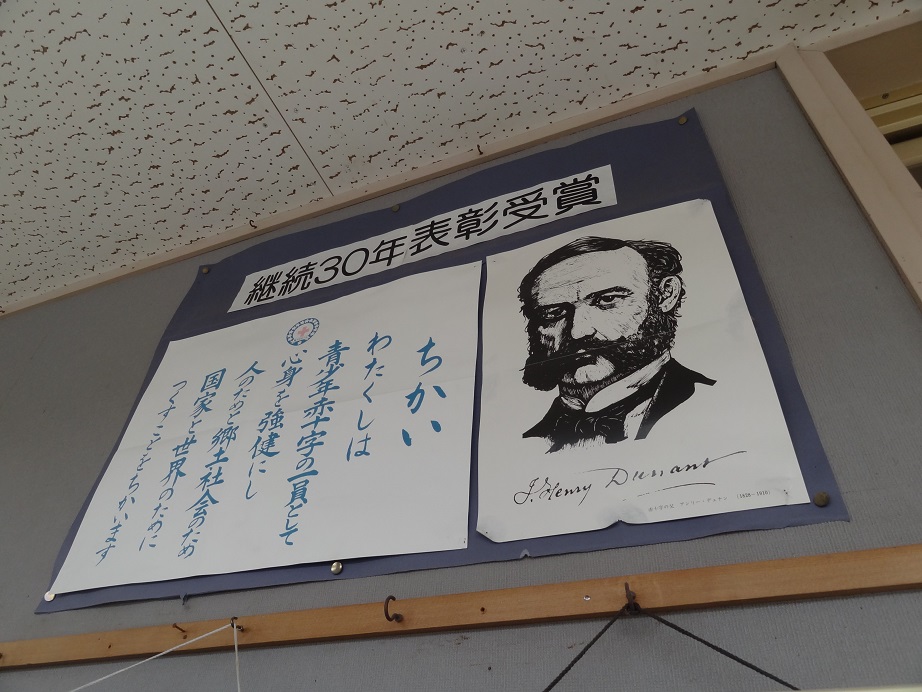 継続30年表彰受賞
ちかい
わたくしは
青少年赤十字の一員として
心身を強健にし
人のためと郷土社会のため
国家と世界のために
つくすことをちかいます
J. Henry Dunant
赤十字の父 アンリー・デュナン (1828-1910)